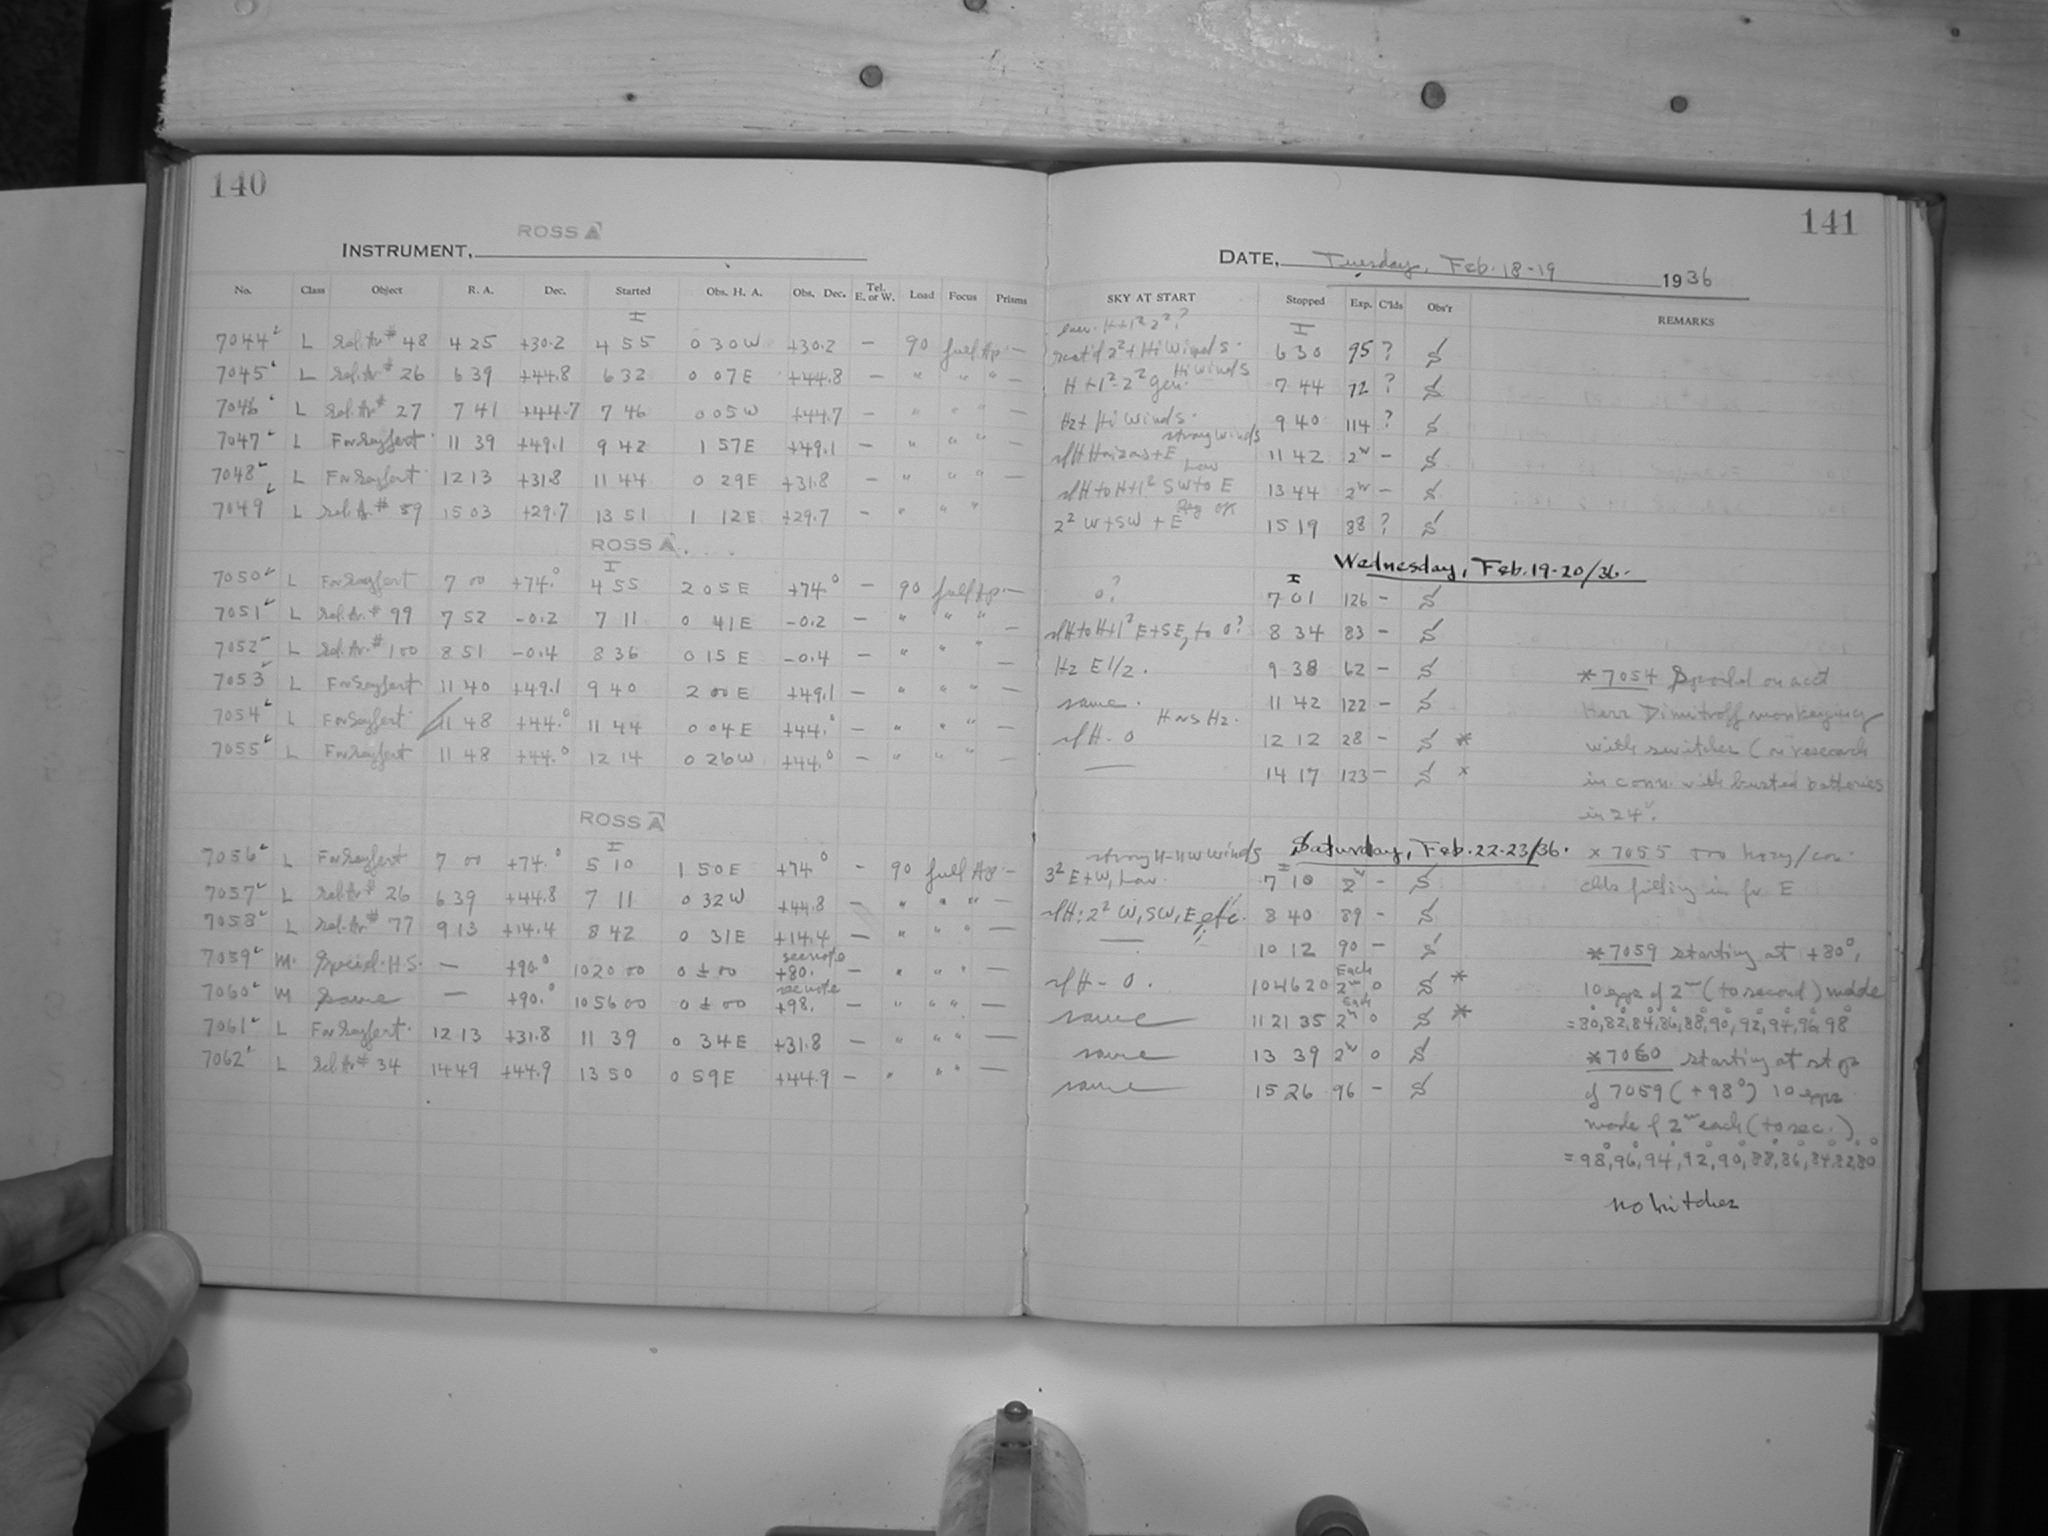 140
ROSS A
INSTRUMENT,
No. Class Object R. A. Dec. Started Obs. H. A. Obs. Dec. Tel. E. or W. Load Focus Prisms
I
7044 L Sel. Ar # 48 4 25 +30.2 4 55 0 30 W +30.2 — 90 full Ap —
7045 L Sel. Ar # 26 6 39 +44.8 6 32 0 07 E +44.8 — " " " —
7046 L Sel. Ar # 27 7 41 +44.7 7 46 0 05 W +44.7 — " " " —
7047 L For Seyfert 11 39 +49.1 9 42 1 57 E +49.1 — " " " —
7048 L For Seyfert 12 13 +31.8 11 44 0 29 E +31.8 — " " " —
7049 L Sel. Ar. # 59 15 03 +29.7 13 51 1 12 E +29.7 — " " "
ROSS A
I
7050 L For Seyfert 7 00 +74.° 4 55 2 05 E +74° — 90 full Ap —
7051 L Sel. Ar. # 99 7 52 -0.2 7 11 0 41 E -0.2 — " " " —
7052 L Sel. Ar. # 100 8 51 -0.4 8 36 0 15 E -0.4 — " " " —
7053 L For Seyfert 11 40 +49.1 9 40 2 00 E +49.1 — " " " —
7054 L For Seyfert 11 48 +44.° 11 44 0 04 E +44.° — " " " —
7055 L For Seyfert 11 48 +44.° 12 14 0 26 W +44.° — " " " —
ROSS A
I
7056 L For Seyfert 7 00 +74.° 5 10 1 50 E +74° — 90 full Ap —
7057 L Sel. Ar # 26 6 39 +44.8 7 11 0 32 W +44.8 — " " " —
7058 L Sel. Ar # 77 9 13 +14.4 8 42 0 31 E +14.4 — " " " —
see note
7059 M. Special. H.S. — +90.° 10 20 00 0 ± 00 +80. — " " " —
see note
7060 M Same — +90.° 10 56 00 0 ± 00 +98. — " " " —
7061 L For Seyfert 12 13 +31.8 11 39 0 34 E +31.8 — " " " —
7062 L Sel. Ar # 34 14 49 +44.9 13 50 0 59 E +44.9 — " " " —
141
DATE, Tuesday, Feb. 18-19 1936
SKY AT START Stopped Exp. C'lds Obs'r REMARKS
H+1² 2²? I
2²+ Hi Winds. 6 30 95 ? S
Hi Winds
H+1²-2² gen. 7 44 72 ? S
H2+ Hi Winds. 9 40 114 ? S
strong winds
slH Horizons+E 11 42 2ʰ — S
Low
slH to H+1² SW to E 13 44 2ʰ — S
2² W+SW+E 15 19 88 ? S
Wednesday, Feb. 19-20/36.
I
0? 7 01 126 — S
slH to H+1² E+SE, to 0? 8 34 83 — S
H2 E 1/2. 9 38 62 — S
same. 11 42 122 — S
slH - 0 12 12 28 — S *
— 14 17 123 — S x
* 7054 Spoiled on acct
Herr Dimitroff monkeying
with switches (or research
in conn. with busted batteries
in 24".
Saturday, Feb. 22-23/36.
strong H-NW winds
I
3² E+W, Low. 7 10 2ʰ — S
slH: 2² W, SW, E, etc. 8 40 89 — S
— 10 12 90 — S
Each
slH - 0. 10 46 20 2ᵐ 0 S *
Each
same 11 21 35 2ᵐ 0 S *
same 13 39 2ʰ 0 S
same 15 26 96 — S
x 7055 hazy/con.
clds filling in fr. E
* 7059 starting at +80°,
10 exps of 2ᵐ (to second) made
= 80, 82, 84, 86, 88, 90, 92, 94, 96, 98°
* 7060 starting at stop
of 7059 (+98°) 10 exps
made of 2ᵐ each (to sec.)
= 98, 96, 94, 92, 90, 88, 86, 84, 82, 80
no hitches